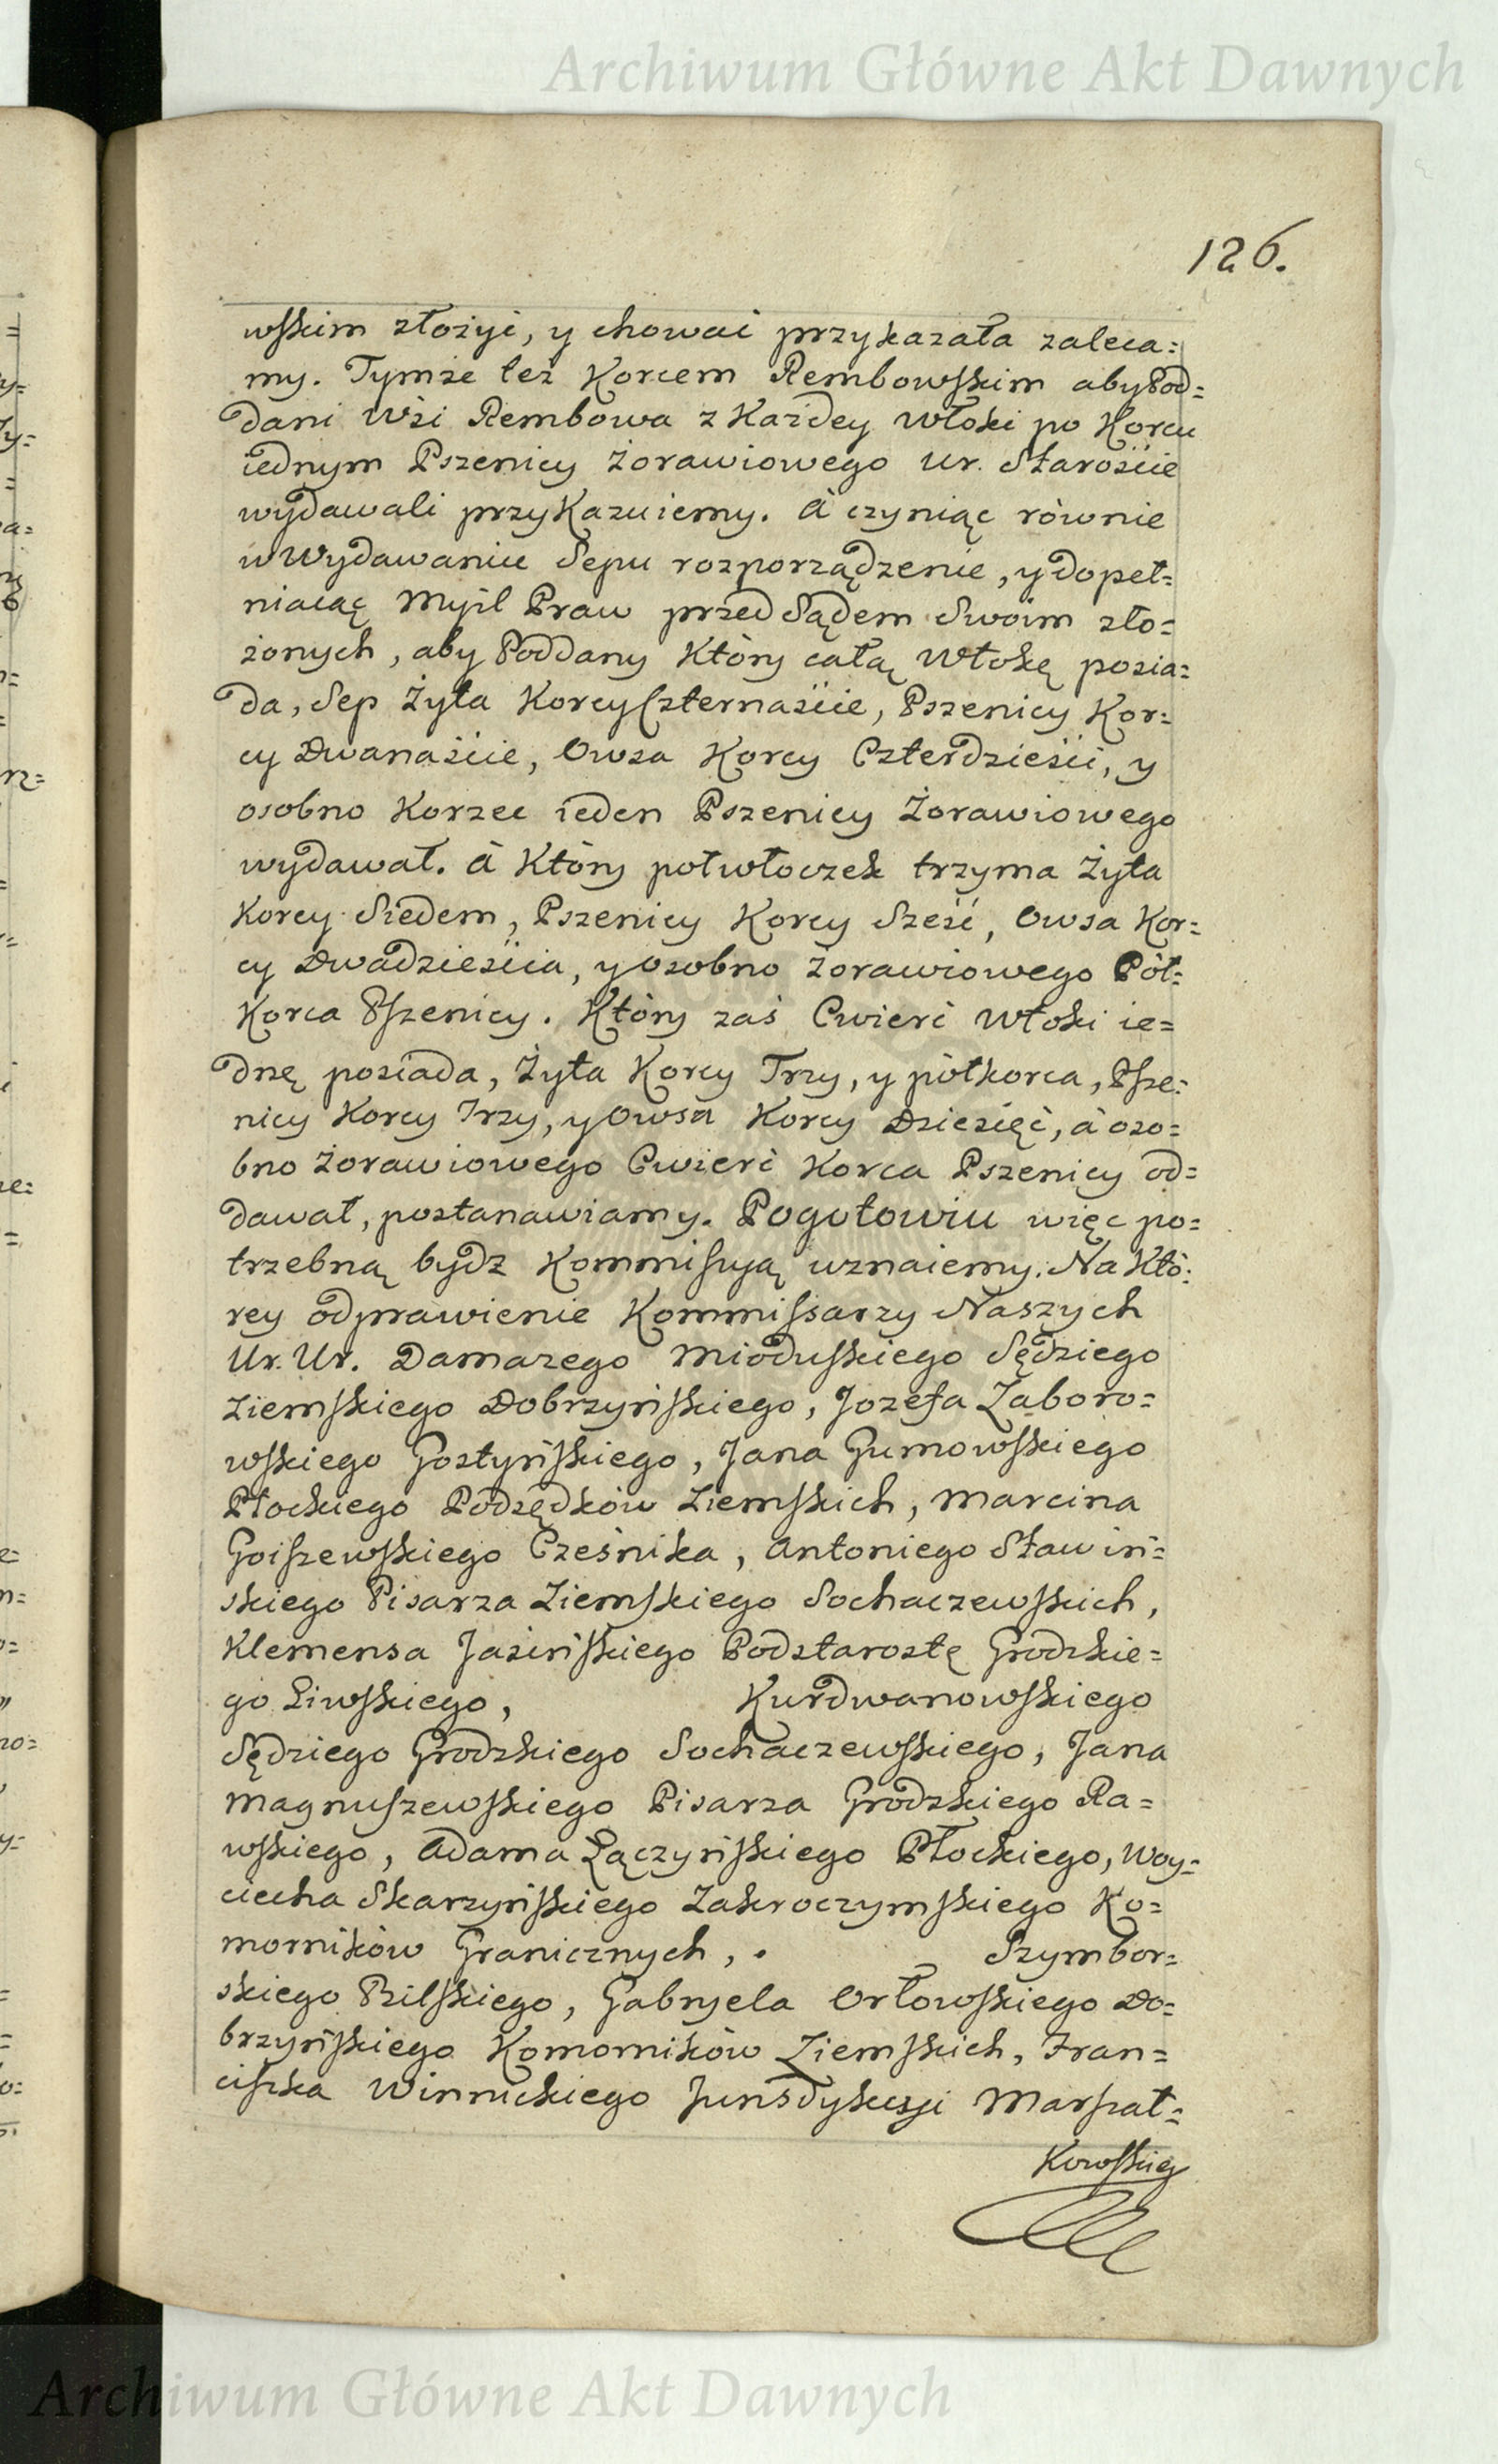 Archiwum Główne Akt Dawnych
126.
wskim złożyć, y chować przykazała zaleca=
my. Tymże też Korcem Rembowskim aby Pod=
dani Wsi Rembowa z Każdey Włoki po Korcu
iednym Pszenicy żorawiowego Ur. Starościie
wydawali przykazuiemy. à czyniąc równie
w Wydawaniu Sepu rozporządzenie, y dopeł=
niaiąc Myśl Praw przed Sądem Swoim zło=
żonych, aby Poddany Który całą Włokę posia=
da, Sep Żyta Korcy Czternaście, Pszenicy Kor=
cy Dwanaście, Owsa Korcy Czterdzieści, y
osobno Korzec ieden Pszenicy Żorawiowego
wydawał. à Który połwłoczek trzyma Żyta
Korcy Siedem, Pszenicy Korcy Sześć, Owsa Kor=
cy Dwadzieścia, y osobno Żorawiowego Pół=
Korca Pszenicy. Który zaś Cwierć Włoki ie=
dnę posiada, Żyta Korcy Trzy, y półkorca, Psze=
nicy Korcy Trzy, y Owsa Korcy Dziesięć, à oso=
bno żorawiowego Cwierć Korca Pszenicy od=
dawał, postanawiamy. Pogotowiu więc po=
trzebną bydz Kommissyą uznaiemy. Na Któ=
rey odprawienie Kommissarzy Naszych
Ur. Ur. Damazego Mioduskiego Sędziego
Ziemskiego Dobrzyńskiego, Jozefa Zaboro=
wskiego Gostyńskiego, Jana Gumowskiego
Płockiego Podsędków Ziemskich, Marcina
Goiszewskiego Cześnika, Antoniego Sławiń=
skiego Pisarza Ziemskiego Sochaczewskich,
Klemensa Jasińskiego Podstarostę Grodzkie=
go Liwskiego, Kurdwanowskiego
Sędziego Grodzkiego Sochaczewskiego, Jana
Magnuszewskiego Pisarza Grodzkiego Ra=
wskiego, Adama Łączyńskiego Płockiego, Woy=
ciecha Skarzyńskiego Zakroczymskiego Ko=
morników Granicznych, . Szymbor=
skiego Bilskiego, Gabryela Orłowskiego Do=
brzyńskiego Komorników Ziemskich, Fran=
ciszka Winnickiego Jurisdykcyi Marszał=
Kowskiey
Archiwum Główne Akt Dawnych